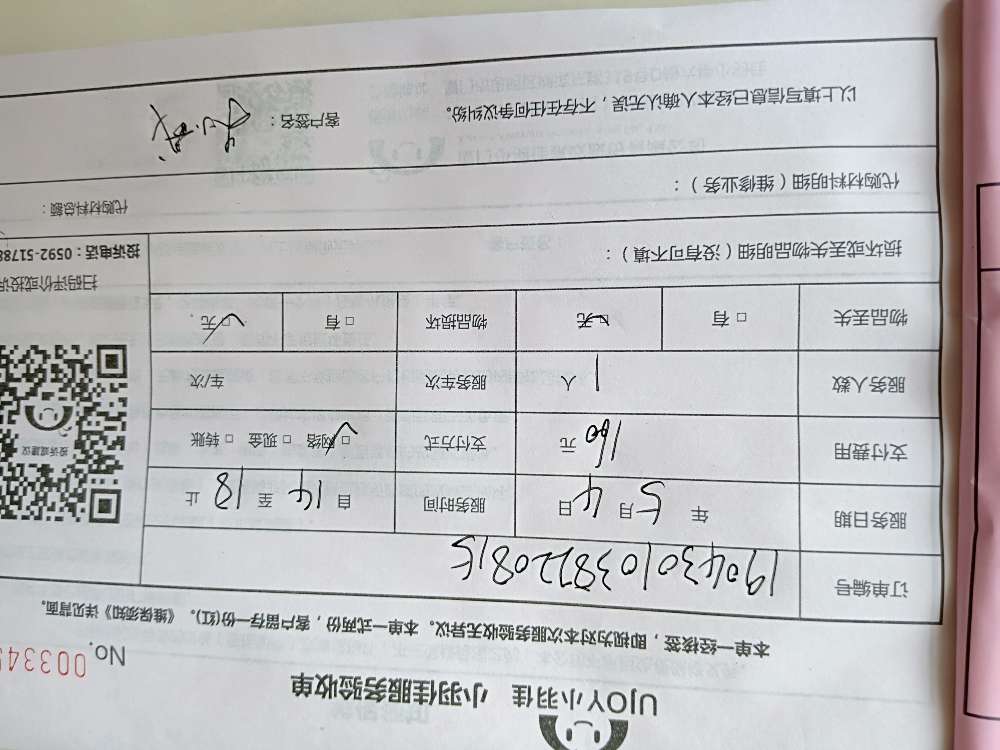 UJOY小羽佳 小羽佳服务验收单
No. 00334
本单一经核签，即视为对本次服务验收无异议。本单一式两份，客户留存一份(红)。《维保须知》详见背面。
订单编号 19043010387220815
服务日期 年5月4日 服务时间 自14至18止
支付费用 160元 支付方式 □网络 □现金 □转账
服务人数 1人 服务车次 车/次
物品丢失 □有 □无 物品损坏 □有 □无
投诉或建议
扫码评价或投诉
投诉电话：0592-5178
损坏或丢失物品明细（没有可不填）：
代购材料明细（维修业务）：
代购材料总额：
以上填写信息已经本人确认无误，不存在任何争议纠纷。 客户签名：